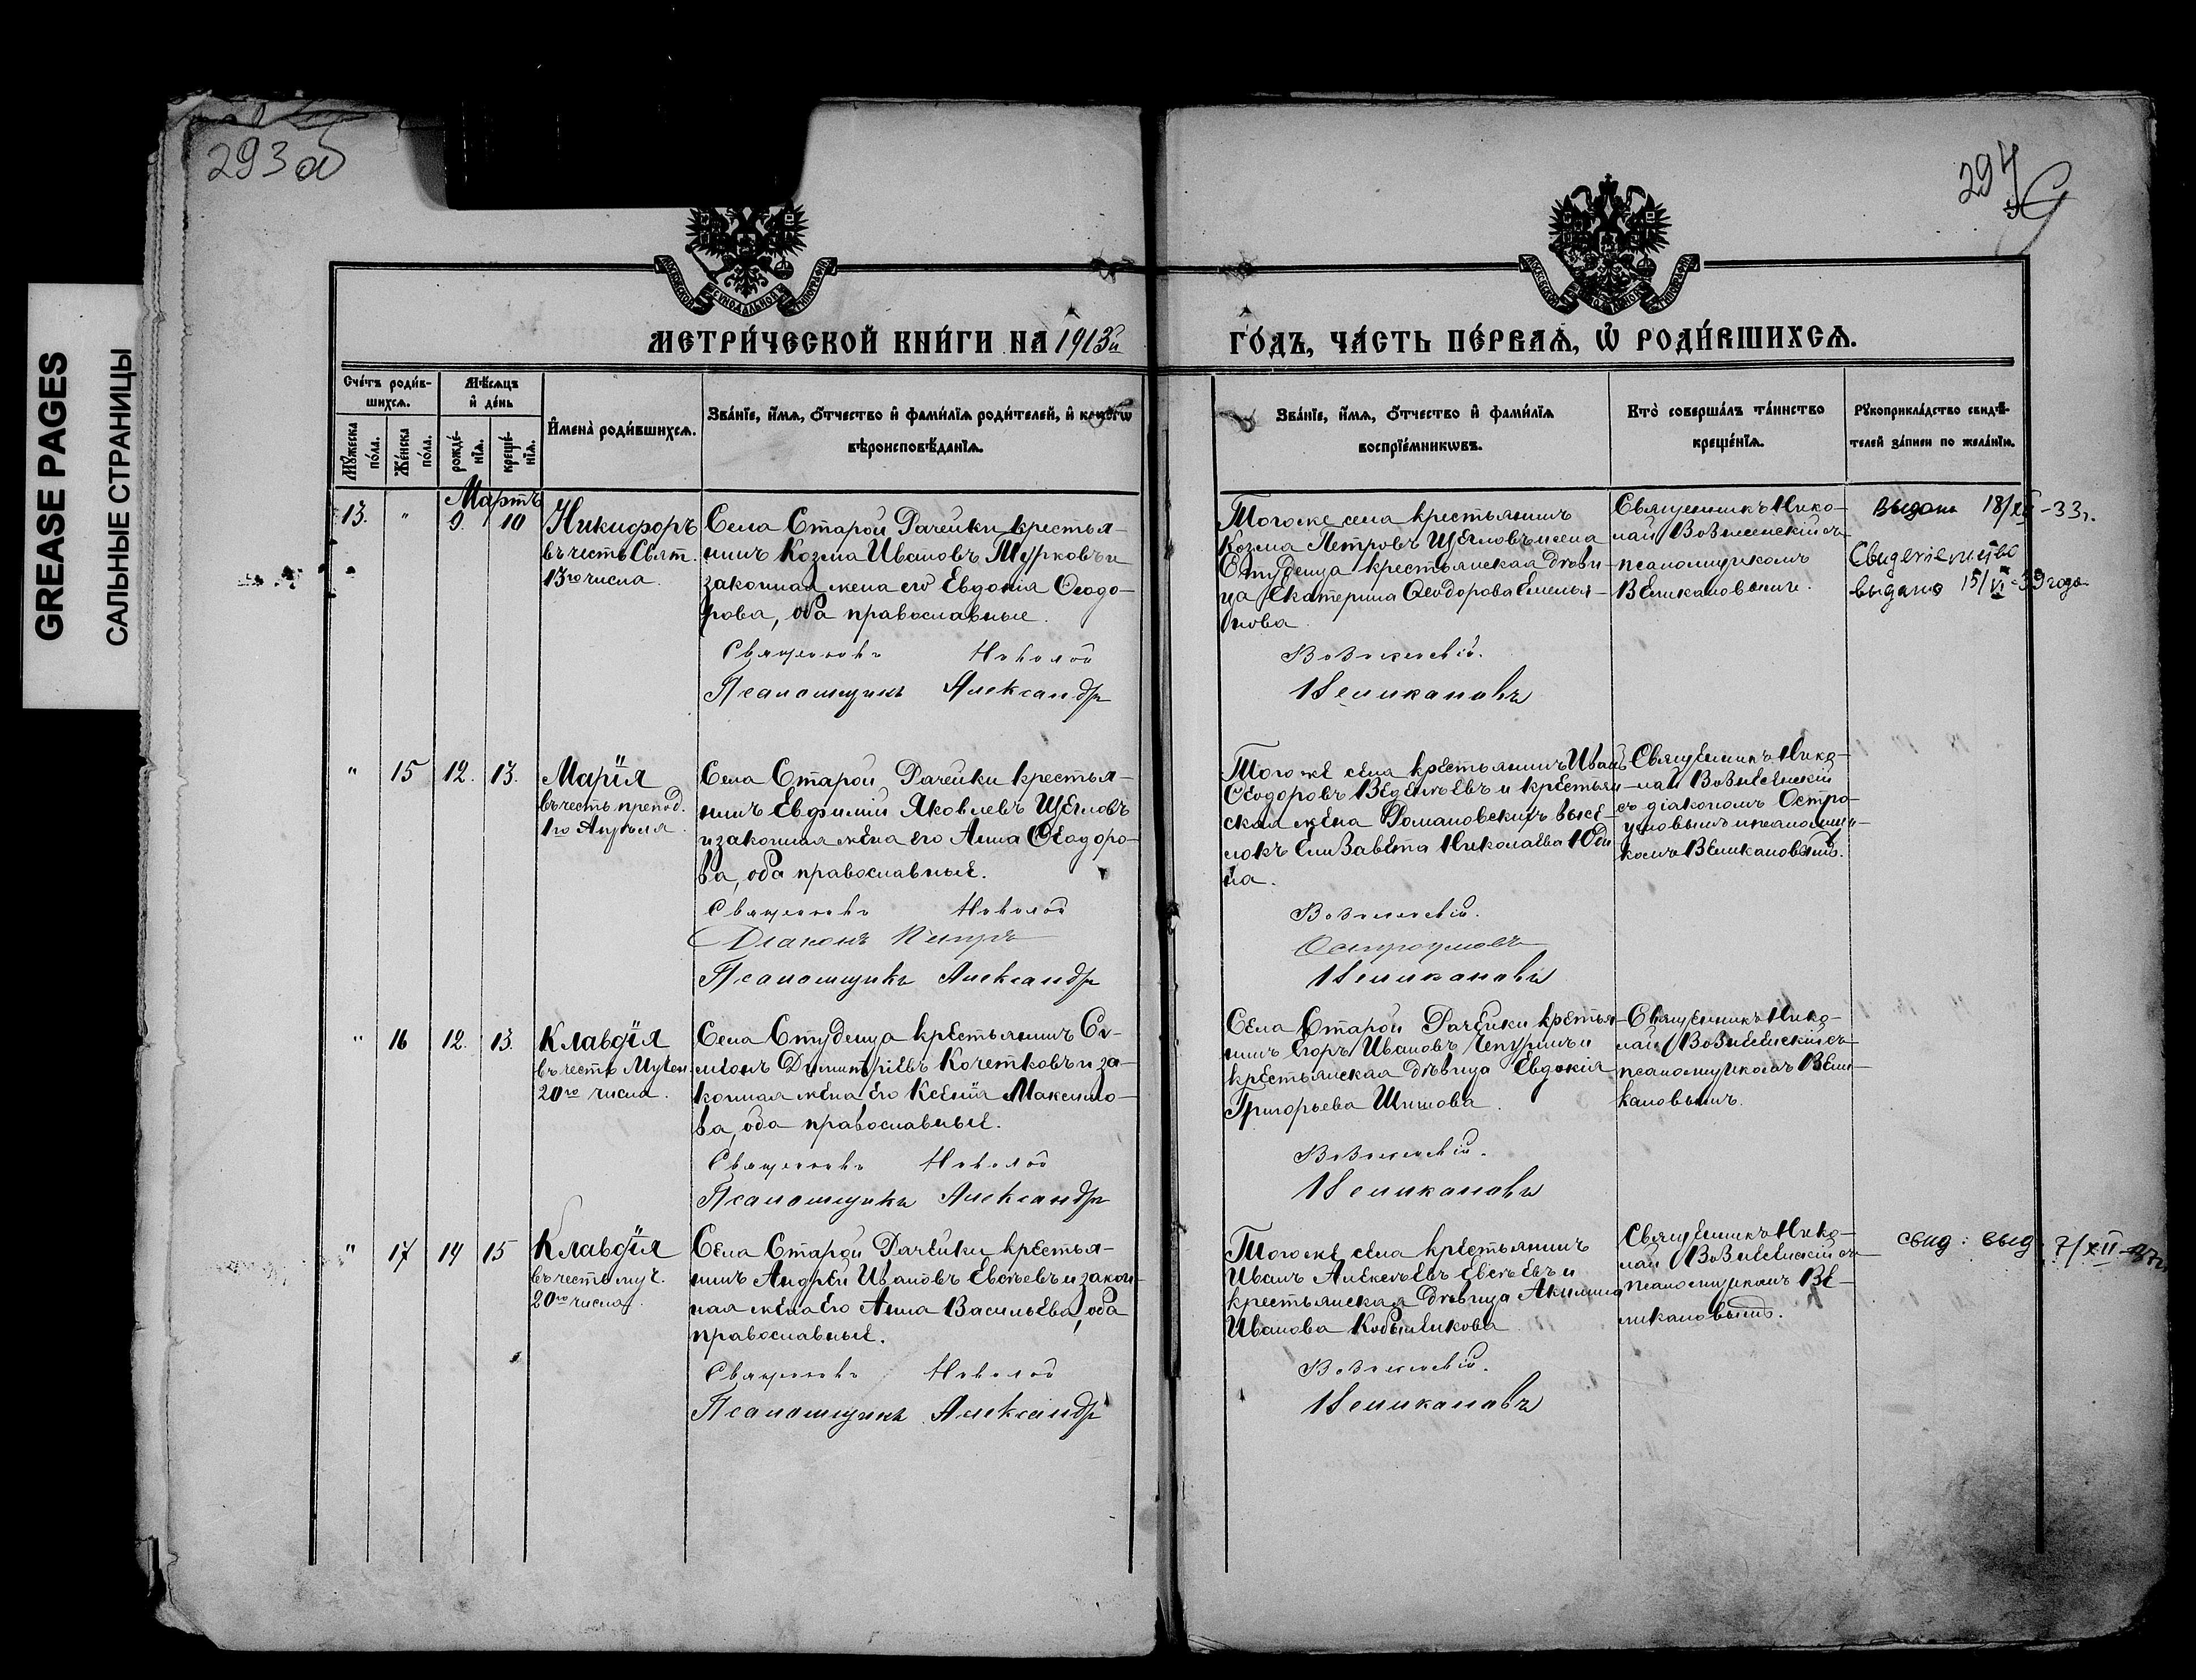 GREASE PAGES
САЛЬНЫЕ СТРАНИЦЫ
293 об
294
МЕТРИ́ЧЕСКОЙ КНИ́ГИ НА 1913й
ГО́ДЪ, ЧА́СТЬ ПЕ́РВАѦ, Ѡ҆ РОДИ́ВШИХСѦ.
Сче́тъ роди́в-
шихсѧ.
Мѣ́сѧцъ
и҆ де́нь
И҆мена̀ роди́вшихсѧ.
Зва́нїе, и҆́мѧ, ѻ҆́тчество и҆ фами́лїѧ роди́телей, и҆ како́гѡ
вѣроисповѣ́данїѧ.
Мꙋ́жеска
по́ла.
Же́нска
по́ла.
рожде́-
нїѧ.
креще́-
нїѧ.
Зва́нїе, и҆́мѧ, ѻ҆́тчество и҆ фами́лїѧ
воспрїе́мникѡвъ.
Кто̀ соверша́лъ та́инство
креще́нїѧ.
Рꙋкоприкла́дство свидѣ́-
телей за́писи по жела́нїю.
Мартъ
13. " 9. 10
Никифоръ
въ честь Свят.
13го числа.
Села Старой Рачейки крестья-
нинъ Козма Ивановъ Турковъ и
законная жена его Евдокія Ѳеодо-
рова, оба православные.
Священникъ Николай
Псаломщикъ Александръ
Тогоже села крестьянинъ
Козма Петровъ Щегловъ и села
Студенца крестьянская дѣви-
ца Екатерина Ѳеодорова Емелья-
нова.
Вознесенскій.
Великановъ
Священникъ Нико-
лай Вознесенскій съ
псаломщикомъ
Великановымъ.
Выдана 18/XII-33 г.
Свидетельство
выдано 15/VI-39 года
" 15 12. 13.
Марія
въ честь препод.
1го Апрѣля.
Села Старой Рачейки крестья-
нинъ Евфимій Яковлевъ Щегловъ
и законная жена его Анна Ѳеодоро-
ва, оба православные.
Священникъ Николай
Діаконъ Петръ
Псаломщикъ Александръ
Тогоже села крестьянинъ Иванъ
Ѳеодоровъ Веденѣевъ и крестьян-
ская жена Романовскихъ высе-
локъ Елизавета Николаева Юди-
на.
Вознесенскій.
Остроумовъ
Великановъ
Священникъ Нико-
лай Вознесенскій
съ діакономъ Остро-
умовымъ и псаломщи-
комъ Великановымъ.
" 16 12. 13.
Клавдія
въ честь Мучен.
20го числа.
Села Студенца крестьянинъ Си-
меонъ Димитріевъ Кочетковъ и за-
конная жена его Ксенія Максимо-
ва, оба православные.
Священникъ Николай
Псаломщикъ Александръ
Села Старой Рачейки крестья-
нинъ Егоръ Ивановъ Чепуринъ и
крестьянская дѣвица Евдокія
Григорьева Шишова.
Вознесенскій.
Великановъ
Священникъ Нико-
лай Вознесенскій съ
псаломщикомъ Вели-
кановымъ.
" 17 14 15
Клавдія
въ честь муч.
20го числа.
Села Старой Рачейки крестья-
нинъ Андрей Ивановъ Евсѣевъ и закон-
ная жена его Анна Васильева, оба
православные.
Священникъ Николай
Псаломщикъ Александръ
Тогоже села крестьянинъ
Иванъ Алексѣевъ Евсѣевъ и
крестьянская дѣвица Акилина
Иванова Кобыленкова.
Вознесенскій.
Великановъ
Священникъ Нико-
лай Вознесенскій съ
псаломщикомъ Ве-
ликановымъ.
свид: выд. 7/XII-37г.